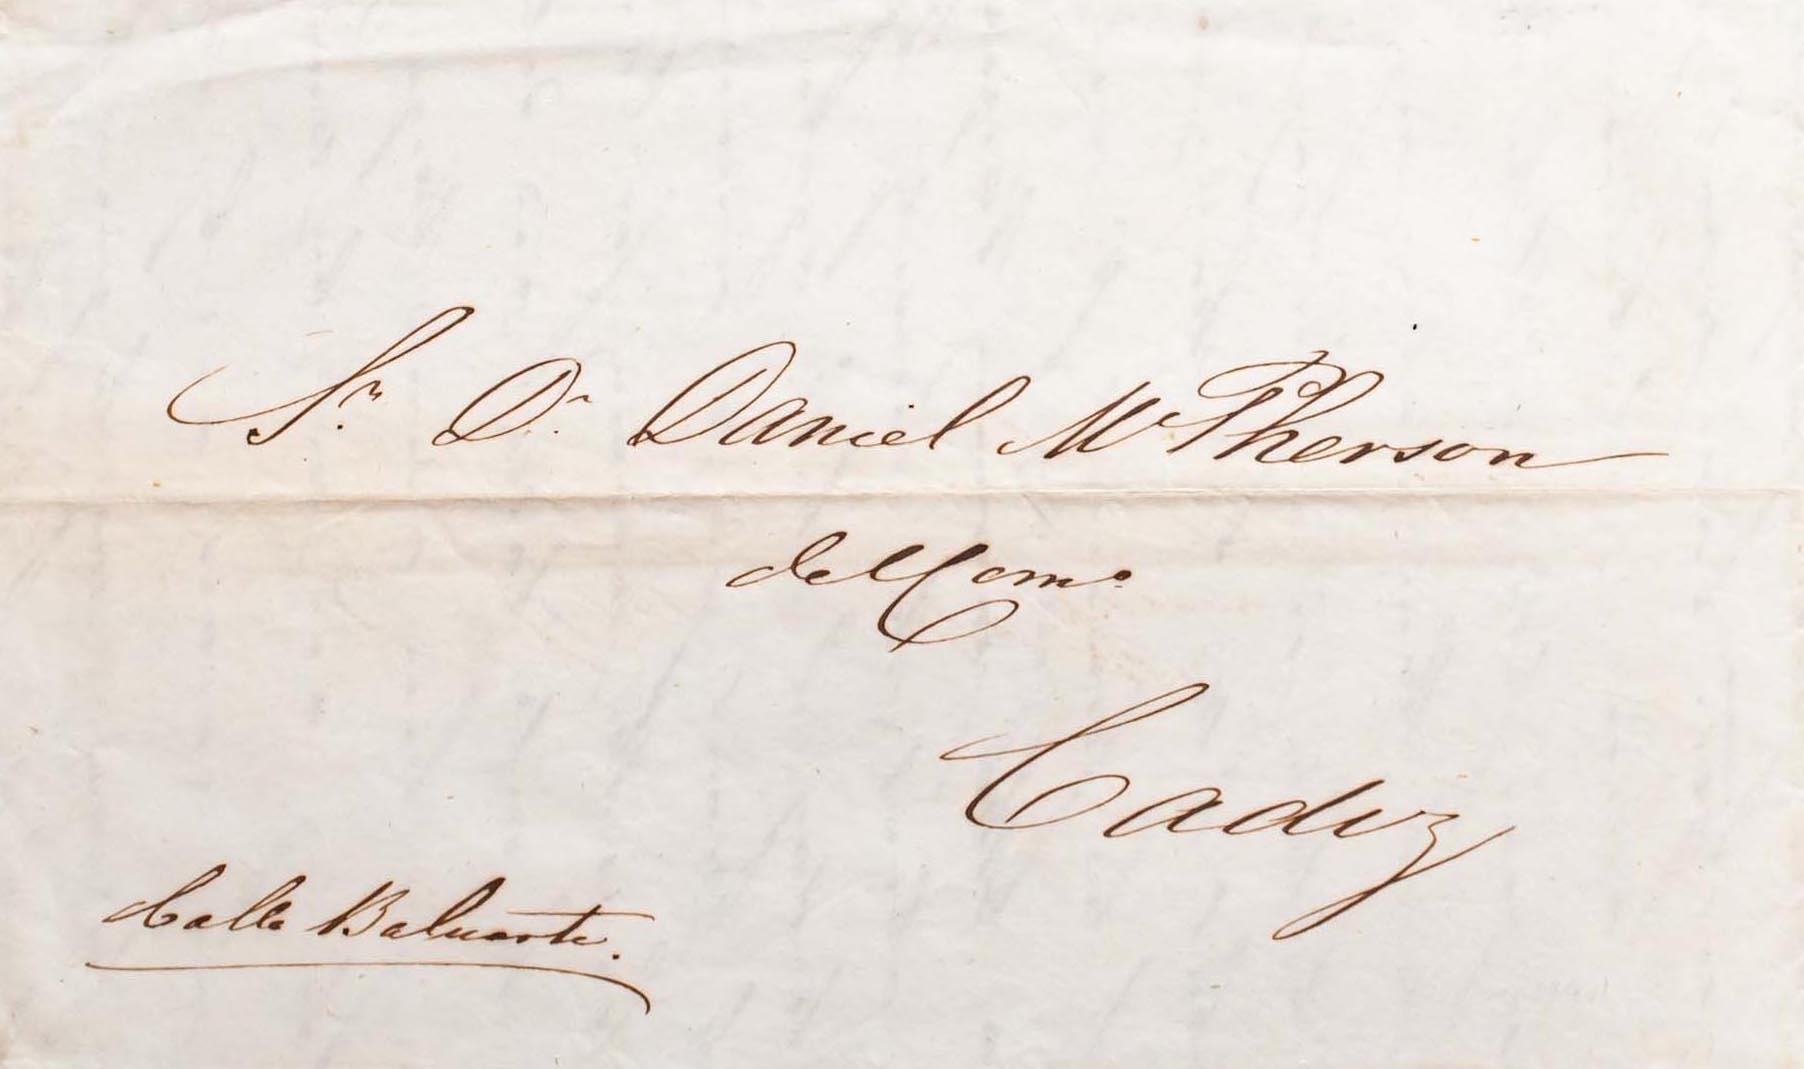 Sr. Dn. Daniel McPherson
del Como.
Cadiz
Calle Baluarte.